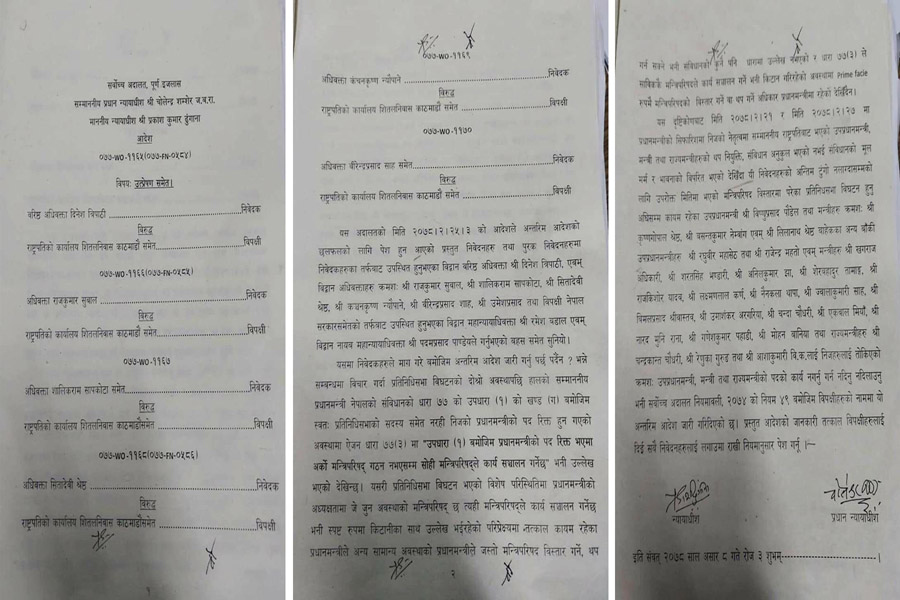 सर्वोच्च अदालत, पूर्ण इजलास
सम्माननीय प्रधान न्यायाधीश श्री चोलेन्द्र शम्शेर ज.ब.रा.
माननीय न्यायाधीश श्री प्रकाश कुमार ढुंगाना
आदेश
०७७-WO-११६५(०७७-FN-०५८४)
विषयः उत्प्रेषण समेत।
वरिष्ठ अधिवक्ता दिनेश त्रिपाठी ........................................निवेदक
विरुद्ध
राष्ट्रपतिको कार्यालय शितलनिवास काठमाडौं समेत........................विपक्षी
०७७-WO-११६६(०७७-FN-०५८५)
अधिवक्ता राजकुमार सुवाल ........................................निवेदक
विरुद्ध
राष्ट्रपतिको कार्यालय शितलनिवास काठमाडौं समेत........................विपक्षी
०७७-WO-११६७
अधिवक्ता शालिकराम सापकोटा समेत........................................निवेदक
विरुद्ध
राष्ट्रपतिको कार्यालय शितलनिवास काठमाडौंसमेत........................विपक्षी
०७७-WO-११६८(०७७-FN-०५८६)
अधिवक्ता सितादेवी श्रेष्ठ ........................................निवेदक
विरुद्ध
राष्ट्रपतिको कार्यालय शितलनिवास काठमाडौंसमेत........................विपक्षी
०७७-WO-११६९
अधिवक्ता कंचनकृष्ण न्यौपाने ........................................निवेदक
विरुद्ध
राष्ट्रपतिको कार्यालय शितलनिवास काठमाडौं समेत........................विपक्षी
०७७-WO-११७०
अधिवक्ता वीरेन्द्रप्रसाद साह समेत........................................निवेदक
विरुद्ध
राष्ट्रपतिको कार्यालय शितलनिवास काठमाडौं समेत........................विपक्षी
यस अदालतको मिति २०७८।२।२५।३ को आदेशले अन्तरिम आदेशको
छलफलको लागि पेश हुन आएको प्रस्तुत निवेदनहरु तथा पुरक निवेदनहरुमा
निवेदकहरुका तर्फवाट उपस्थित हुनुभएका विद्वान वरिष्ठ अधिवक्ता श्री दिनेश त्रिपाठी, एवम्
विद्वान अधिवक्ताहरु क्रमशः श्री राजकुमार सुवाल, श्री शालिकराम सापकोटा, श्री सितादेवी
श्रेष्ठ, श्री कंचनकृष्ण न्यौपाने, श्री वीरेन्द्रप्रसाद शाह, श्री उमेशप्रसाद तथा विपक्षी नेपाल
सरकारसमेतको तर्फवाट उपस्थित हुनुभएका विद्वान महान्यायाधिवक्ता श्री रमेश बडाल एवम्
विद्वान नायव महान्यायाधिवक्ता श्री पदमप्रसाद पाण्डेयले गर्नुभएको वहस समेत सुनियो।
यसमा निवेदकहरुले माग गरे बमोजिम अन्तरिम आदेश जारी गर्नु पर्छ पर्दैन ? भन्ने
सम्बन्धमा विचार गर्दा प्रतिनिधिसभा विघटनको दोश्रो अवस्थापछि हालको सम्माननीय
प्रधानमन्त्री नेपालको संविधानको धारा ७७ को उपधारा (१) को खण्ड (ग) बमोजिम
स्वतः प्रतिनिधिसभाको सदस्य समेत नरही निजको प्रधानमन्त्रीको पद रिक्त हुन गएको
अवस्थामा ऐजन धारा ७७(३) मा "उपधारा (१) बमोजिम प्रधानमन्त्रीको पद रिक्त भएमा
अर्को मन्त्रिपरिषद् गठन नभएसम्म सोही मन्त्रिपरिषद्ले कार्य सञ्चालन गर्नेछ" भनी उल्लेख
भएको देखिन्छ। यसरी प्रतिनिधिसभा विघटन भएको विशेष परिस्थितिमा प्रधानमन्त्रीको
अध्यक्षतामा जे जुन अवस्थाको मन्त्रिपरिषद् छ त्यही मन्त्रिपरिषद्ले कार्य सञ्चालन गर्नेछ
भनी स्पष्ट रुपमा किटानीका साथ उल्लेख भईरहेको परिप्रेक्ष्यमा तत्काल कायम रहेका
प्रधानमन्त्रीले अन्य सामान्य अवस्थाको प्रधानमन्त्रीले जस्तो मन्त्रिपरिषद् विस्तार गर्ने, थप
२
गर्न सक्ने भनी संविधानको कुनै पनि धारामा उल्लेख नभएको र धारा ७७(३) ले
साविककै मन्त्रिपरिषद्ले कार्य सञ्चालन गर्ने भनी किटान गरिरहेको अवस्थामा Prime facie
रुपमै मन्त्रिपरिषद्को विस्तार गर्ने वा थप गर्ने अधिकार प्रधानमन्त्रीमा रहेको देखिँदैन।
यस दृष्टिकोणबाट मिति २०७८।२।२१ र मिति २०७८।२।२७ मा
प्रधानमन्त्रीको सिफारिशमा निजको नेतृत्वमा सम्माननीय राष्ट्रपतिबाट भएको उपप्रधानमन्त्री,
मन्त्री तथा राज्यमन्त्रीहरुको थप नियुक्ति, संविधान अनुकुल भएको नभई संविधानको मूल
मर्म र भावनाको विपरित भएको देखिँदा यी निवेदनहरुको अन्तिम टुंगो नलागदासम्मको
लागि उपरोक्त मितिमा भएको मन्त्रिपरिषद् विस्तारमा परेका प्रतिनिधिसभा विघटन हुनु
अघिसम्म कायम रहेका उपप्रधानमन्त्री श्री विष्णुप्रसाद पौडेल तथा मन्त्रीहरु क्रमशः श्री
कृष्णगोपाल श्रेष्ठ, श्री वसन्तकुमार नेम्वांग एवम् श्री लिलानाथ श्रेष्ठ वाहेकका अन्य बाँकी
उपप्रधानमन्त्रीहरु श्री रघुवीर महासेठ तथा श्री राजेन्द्र महतो एवम् मन्त्रीहरु श्री खगराज
अधिकारी, श्री शरतसिंह भण्डारी, श्री अनिलकुमार झा, श्री शेरवहादुर तामाङ, श्री
राजकिशोर यादव, श्री लक्ष्मणलाल कर्ण, श्री नैनकला थापा, श्री ज्वालाकुमारी साह, श्री
विमलप्रसाद श्रीवास्तव, श्री उमाशंकर अरगरिया, श्री चन्दा चौधरी, श्री एकवाल मियाँ, श्री
नारद मुनि राना, श्री गणेशकुमार पहाडी, श्री मोहन बानियाँ तथा राज्यमन्त्रीहरु श्री
चन्द्रकान्त चौधरी, श्री रेणुका गुरुङ तथा श्री आशाकुमारी वि.क.लाई निजहरुलाई तोकिएको
क्रमशः उपप्रधानमन्त्री, मन्त्री तथा राज्यमन्त्रीको पदको कार्य नगर्नु गर्न नदिनु नदिलाउनु
भनी सर्वोच्च अदालत नियमावली, २०७४ को नियम ४९ बमोजिम विपक्षीहरुको नाममा यो
अन्तरिम आदेश जारी गरिदिएको छ। प्रस्तुत आदेशको जानकारी तत्काल विपक्षीहरुलाई
दिई सवै निवेदनहरुलाई लगाउमा राखी नियमानुसार पेश गर्नू।
न्यायाधीश
प्रधान न्यायाधीश
इति संवत् २०७८ साल असार ८ गते रोज ३ शुभम्------------------------।